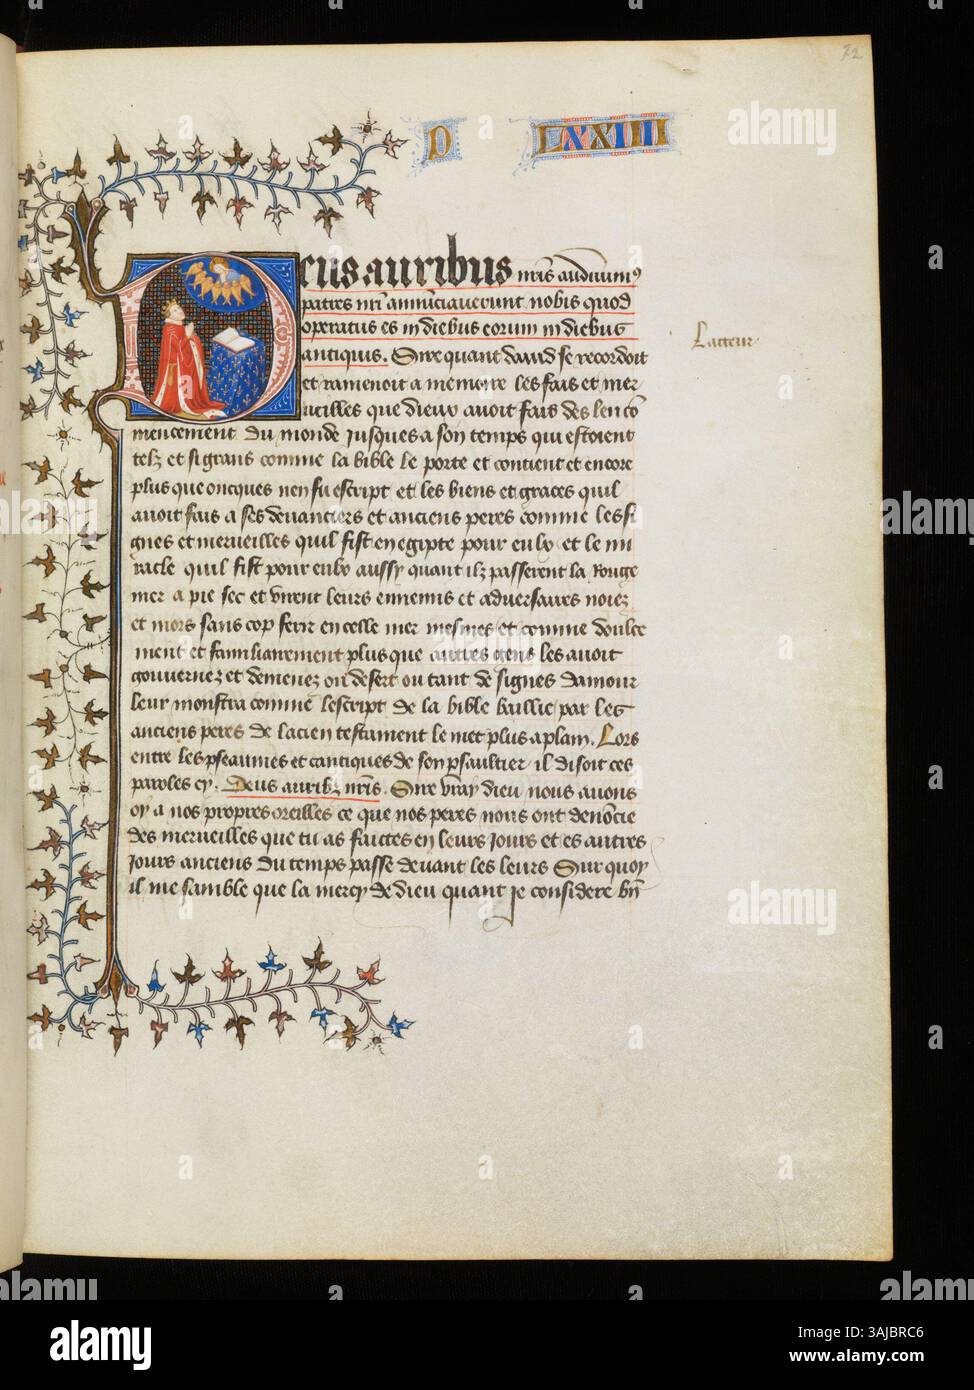 72
D LXXIIII
Deus auribus nr̃is audiuimꝰ
patres nr̃i annũciauerunt nobis quod
operatus es in diebus eorum in diebus
antiquis. Sire quant dauid se recordoit
Lacteur
et ramenoit a memoire les fais et mer
ueilles que dieux auoit fais des len cõ
mencement du monde jusques a son temps qui estoient
telz et si grans comme la bible le porte et contient et encore
plus que oncques nen fu escript et les biens et graces quil
auoit fais a ses deuanciers et anciens peres comme les si
gnes et merueilles quil fist en egipte pour eulx et le mi
racle quil fist pour eulx aussy quant ilz passerent la Rouge
mer a pie sec et virent leurs ennemis et aduersaires noiez
et mors sans cop ferir en celle mer mesmes et comme doulce
ment et familiairement plus que autres gens les auoit
gouuernez et demenez ou desert ou tant de signes damour
leur monstra comme lescript de la bible baillie par les
anciens peres de lancien testament le met plus a plain. Lors
entre les pseaumes et cantiques de son psaultier il disoit ces
paroles cy. Deus auribz nr̃is. Sire vray dieu nous auons
oy a nos propres oreilles ce que nos peres nous ont denõcie
des merueilles que tu as faictes en leurs jours et es autres
jours anciens du temps passe deuant les leurs Sur quoy
il me samble que la mercy de dieu quant je considere bñ
alamy
Image ID: 2AJBRC6
www.alamy.com